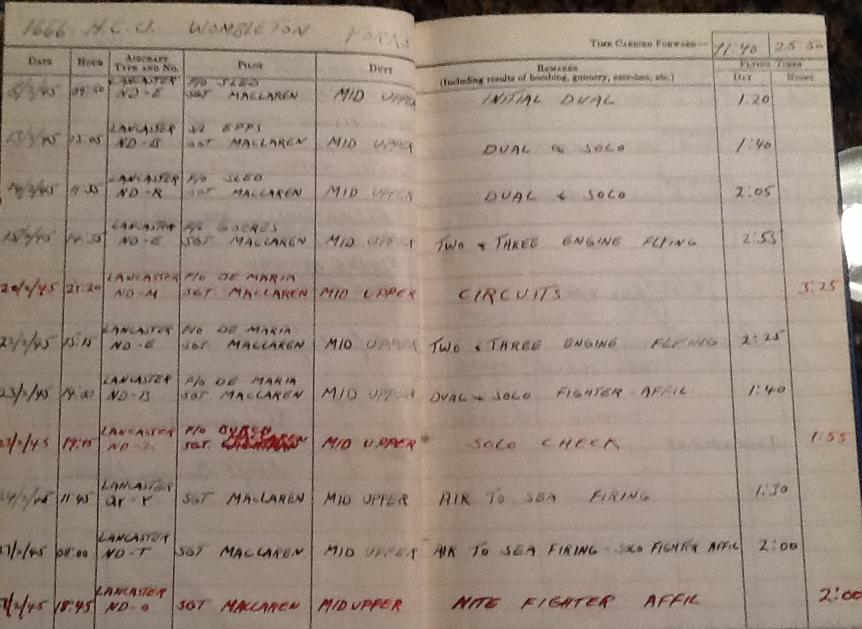 1666 H.C.U. WOMBLETON
TIME CARRIED FORWARD— 11:40
DATE HOUR AIRCRAFT TYPE AND NO. PILOT DUTY REMARKS (Including results of bombing, gunnery, exercises, etc.) FLYING TIMES DAY NIGHT
LANCASTER F/O SLED
ND-E SGT MACLAREN MID UPPER INITIAL DUAL 1:20
LANCASTER EPPS
15:05 ND-B SGT MACLAREN MID UPPER DUAL & SOLO 1:40
LANCASTER F/O SLED
ND-R SGT MACLAREN MID UPPER DUAL & SOLO 2:05
LANCASTER F/O
ND-E SGT MACLAREN MID UPPER TWO & THREE ENGINE FLYING 2:55
LANCASTER F/O DE MARIA
21:20 ND-M SGT MACLAREN MID UPPER CIRCUITS 3:25
LANCASTER F/O DE MARIA
15:15 ND-E SGT MACLAREN MID UPPER TWO & THREE ENGINE FLYING 2:25
LANCASTER F/O DE MARIA
ND-B SGT MACLAREN MID UPPER DUAL & SOLO FIGHTER AFFIL 1:40
LANCASTER F/O
19:15 SGT. MID UPPER SOLO CHECK 1:55
LANCASTER
11:45 SGT MACLAREN MID UPPER AIR TO SEA FIRING 1:30
LANCASTER
ND-T SGT MACLAREN MID UPPER AIR TO SEA FIRING - SOLO FIGHTER AFFIL 2:00
LANCASTER
18:45 ND-O SGT MACLAREN MID UPPER NITE FIGHTER AFFIL 2:00